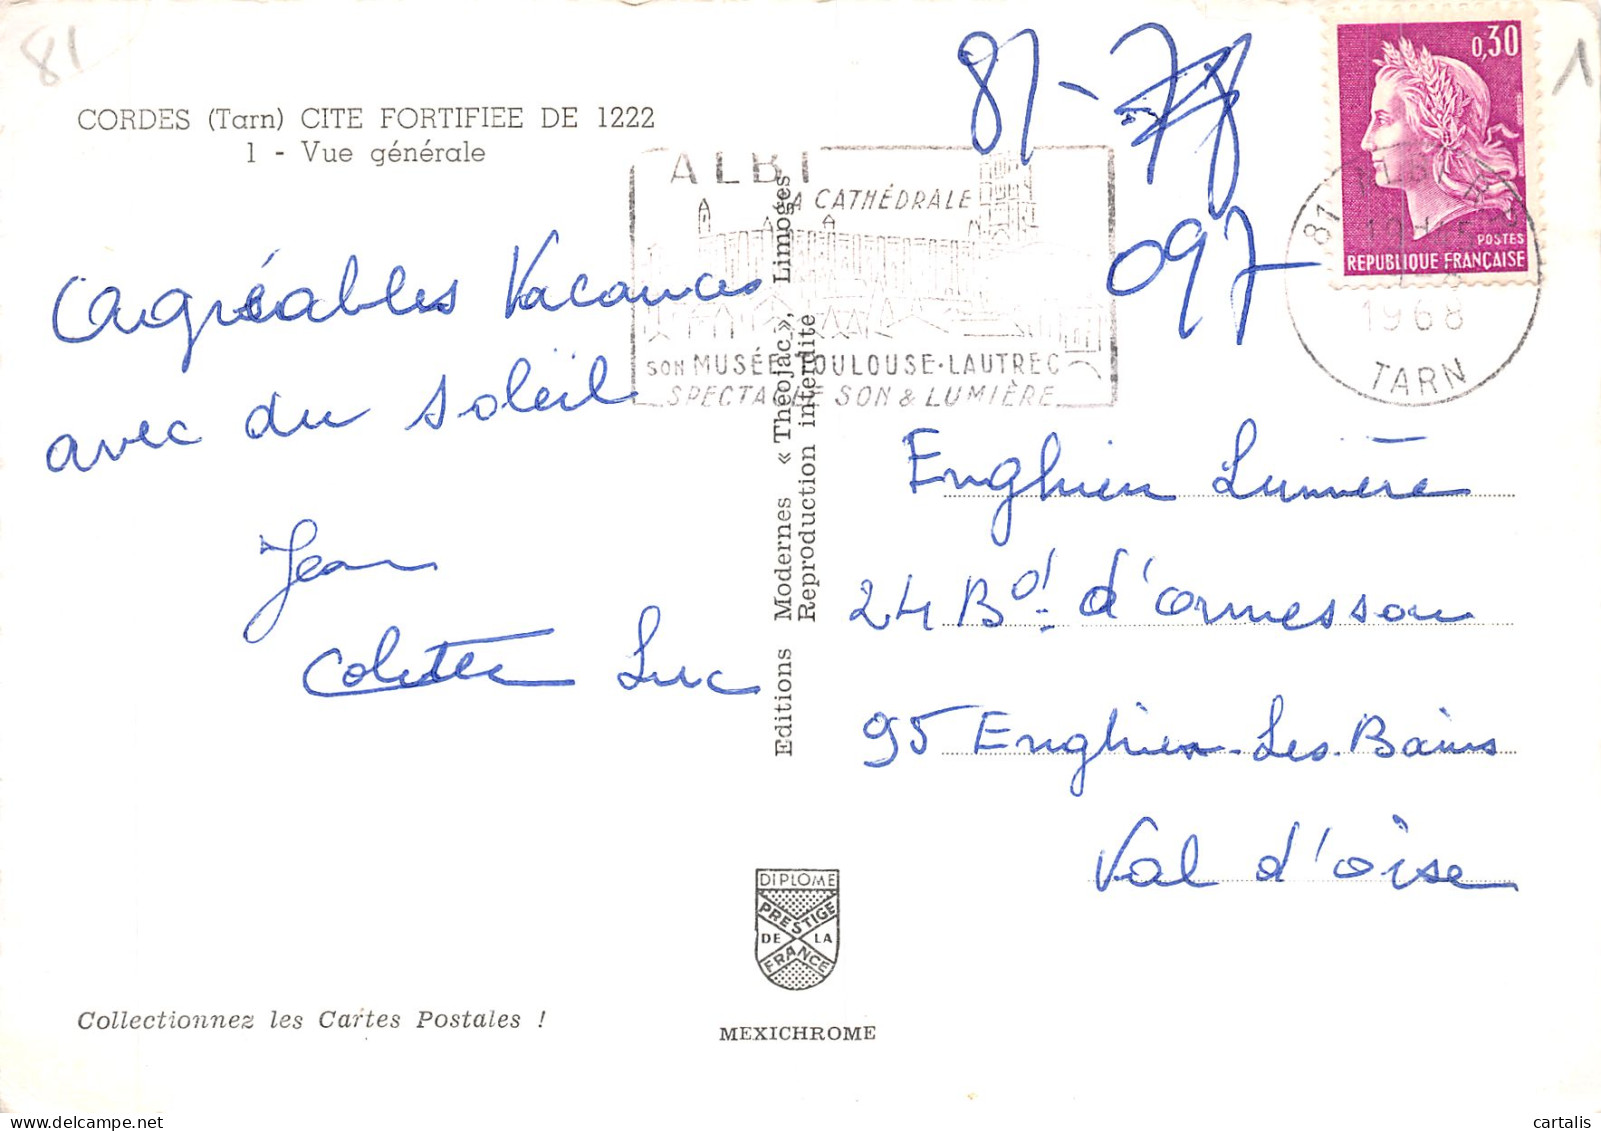 81
1
CORDES (Tarn) CITE FORTIFIEE DE 1222
1 - Vue générale
81-78
097
0,30
POSTES
REPUBLIQUE FRANÇAISE
ALBI
LA CATHÉDRALE
SON MUSÉE TOULOUSE-LAUTREC
SPECTACLE SON & LUMIÈRE
81 ALBI
1968
TARN
Agréables Vacances
avec du soleil
Jean
Colette Luc
Editions Modernes « Théojac », Limoges
Reproduction interdite
Enghien Lumière
24 Bd. d'ormesson
95 Enghien-Les-Bains
Val d'oise
DIPLOME
PRESTIGE
DE LA
FRANCE
Collectionnez les Cartes Postales !
MEXICHROME
cartalis